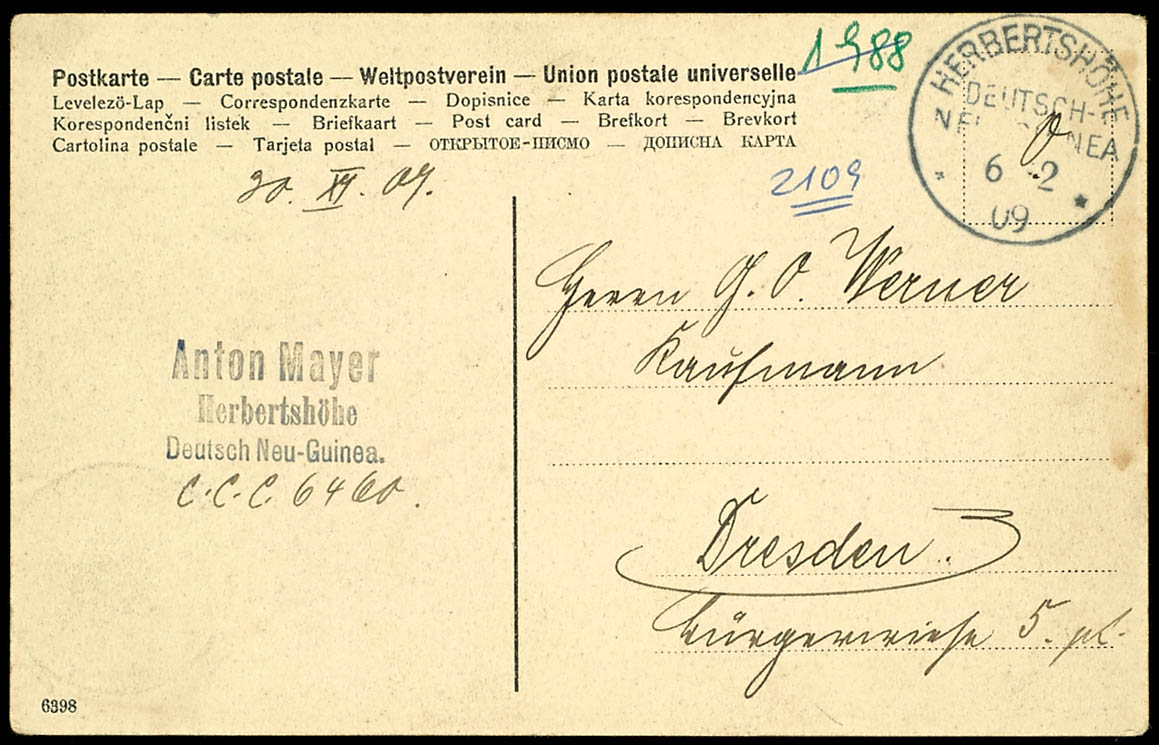 1988
Postkarte — Carte postale — Weltpostverein — Union postale universelle
Levelező-Lap — Correspondenzkarte — Dopisnice — Karta korespondencyjna
Korespondenčni listek — Briefkaart — Post card — Brefkort — Brevkort
Cartolina postale — Tarjeta postal — ОТКРЫТОЕ-ПИСМО — ДОПИСНА КАРТА
HERBERTSHÖHE
DEUTSCH-
NEA
6 2
09
2109
Herrn G. O. Werner
Kaufmann
Dresden.
Bürgerwiese 5. pt.
Anton Mayer
Herbertshöhe
Deutsch Neu-Guinea.
C.C.C. 6460.
6398